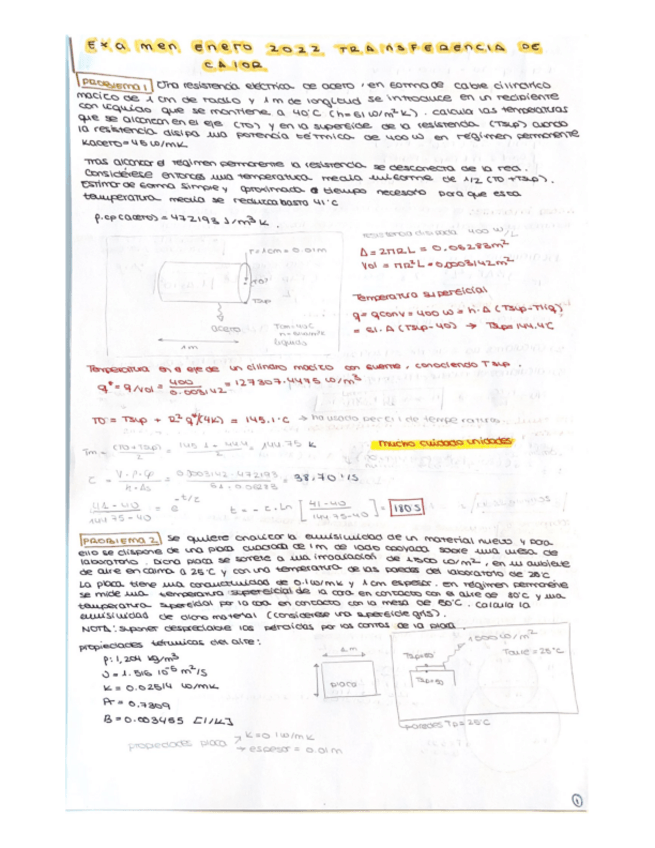 Examen enero 2022 TRANSFERENCIA DE
CALOR
PROBLEMA 1 Una resistencia eléctrica de acero, en forma de cable cilíndrico
macizo de 1 cm de radio y 1m de longitud se introduce en un recipiente
con líquido que se mantiene a 40°C (h=61 W/m²K). Calcula las temperaturas
que se alcanzan en el eje (T0) y en la superficie de la resistencia (Tsup) cuando
la resistencia disipa una potencia térmica de 400 W en régimen permanente
Kacero=45 W/mK
Tras alcanzar el régimen permanente la resistencia se desconecta de la red.
Considérese entonces una temperatura media uniforme de 1/2 (T0+Tsup).
Estimar de forma simple y aproximada el tiempo necesario para que esta
temperatura media se reduzca hasta 41°C
ρ.cp(acero)=472193 J/m³K.
resistencia disipada 400 W/L
r=1cm=0.01m
T0?
Tsup
acero
1m
líquido
A=2πRL=0.06283m²
Vol=πR²L=0.0003142m²
Temperatura superficial
q=qconv=400W=h.A(Tsup-Tliq)
=61.A(Tsup-40) → Tsup=144.4C
Temperatura en el eje de un cilindro macizo con fuente, conociendo Tsup.
q*=q/vol= 400/0.003142 =127307.4475 W/m³
T0=Tsup+R²q*/(4K)=145.1°C → ha usado per c i l de temperaturas
mucho cuidado unidades
Tm= (T0+Tsup)/2 = 145.1+144.4/2 =144.75 K
= 0.0003142.472193/61.0.06283 =38,70's
41-40/144.75-40 = e^-t/τ t=-τ.Ln[41-40/144.75-40]= 180 s
PROBLEMA 2 Se quiere analizar la emisividad de un material nuevo y para
ello se dispone de una placa cuadrada de 1m de lado apoyada sobre una mesa de
laboratorio. Dicha placa se somete a una irradiación de 1500 W/m², en un ambiente
de aire en calma a 25°C y con una temperatura de las paredes del laboratorio de 25°C
La placa tiene una conductividad de 0.1W/mK y 1cm espesor. en régimen permanente
se mide una temperatura superficial de la cara en contacto con el aire de 80°C y una
temperatura superficial por la cara en contacto con la mesa de 50°C. Calcula la
emisividad de dicho material (considérese una superficie gris).
NOTA: suponer despreciable las pérdidas por los cantos de la placa.
propiedades térmicas del aire:
ρ:1,204 kg/m³
ν=1.516 10⁻⁵ m²/s
K=0.02514 W/mK
Pr=0.7309
β=0.003455 [1/K]
1m
placa
Taire=25°C
paredes Tp=25°C
propiedades placa → K=0.1W/mK
→ espesor=0.01m
1